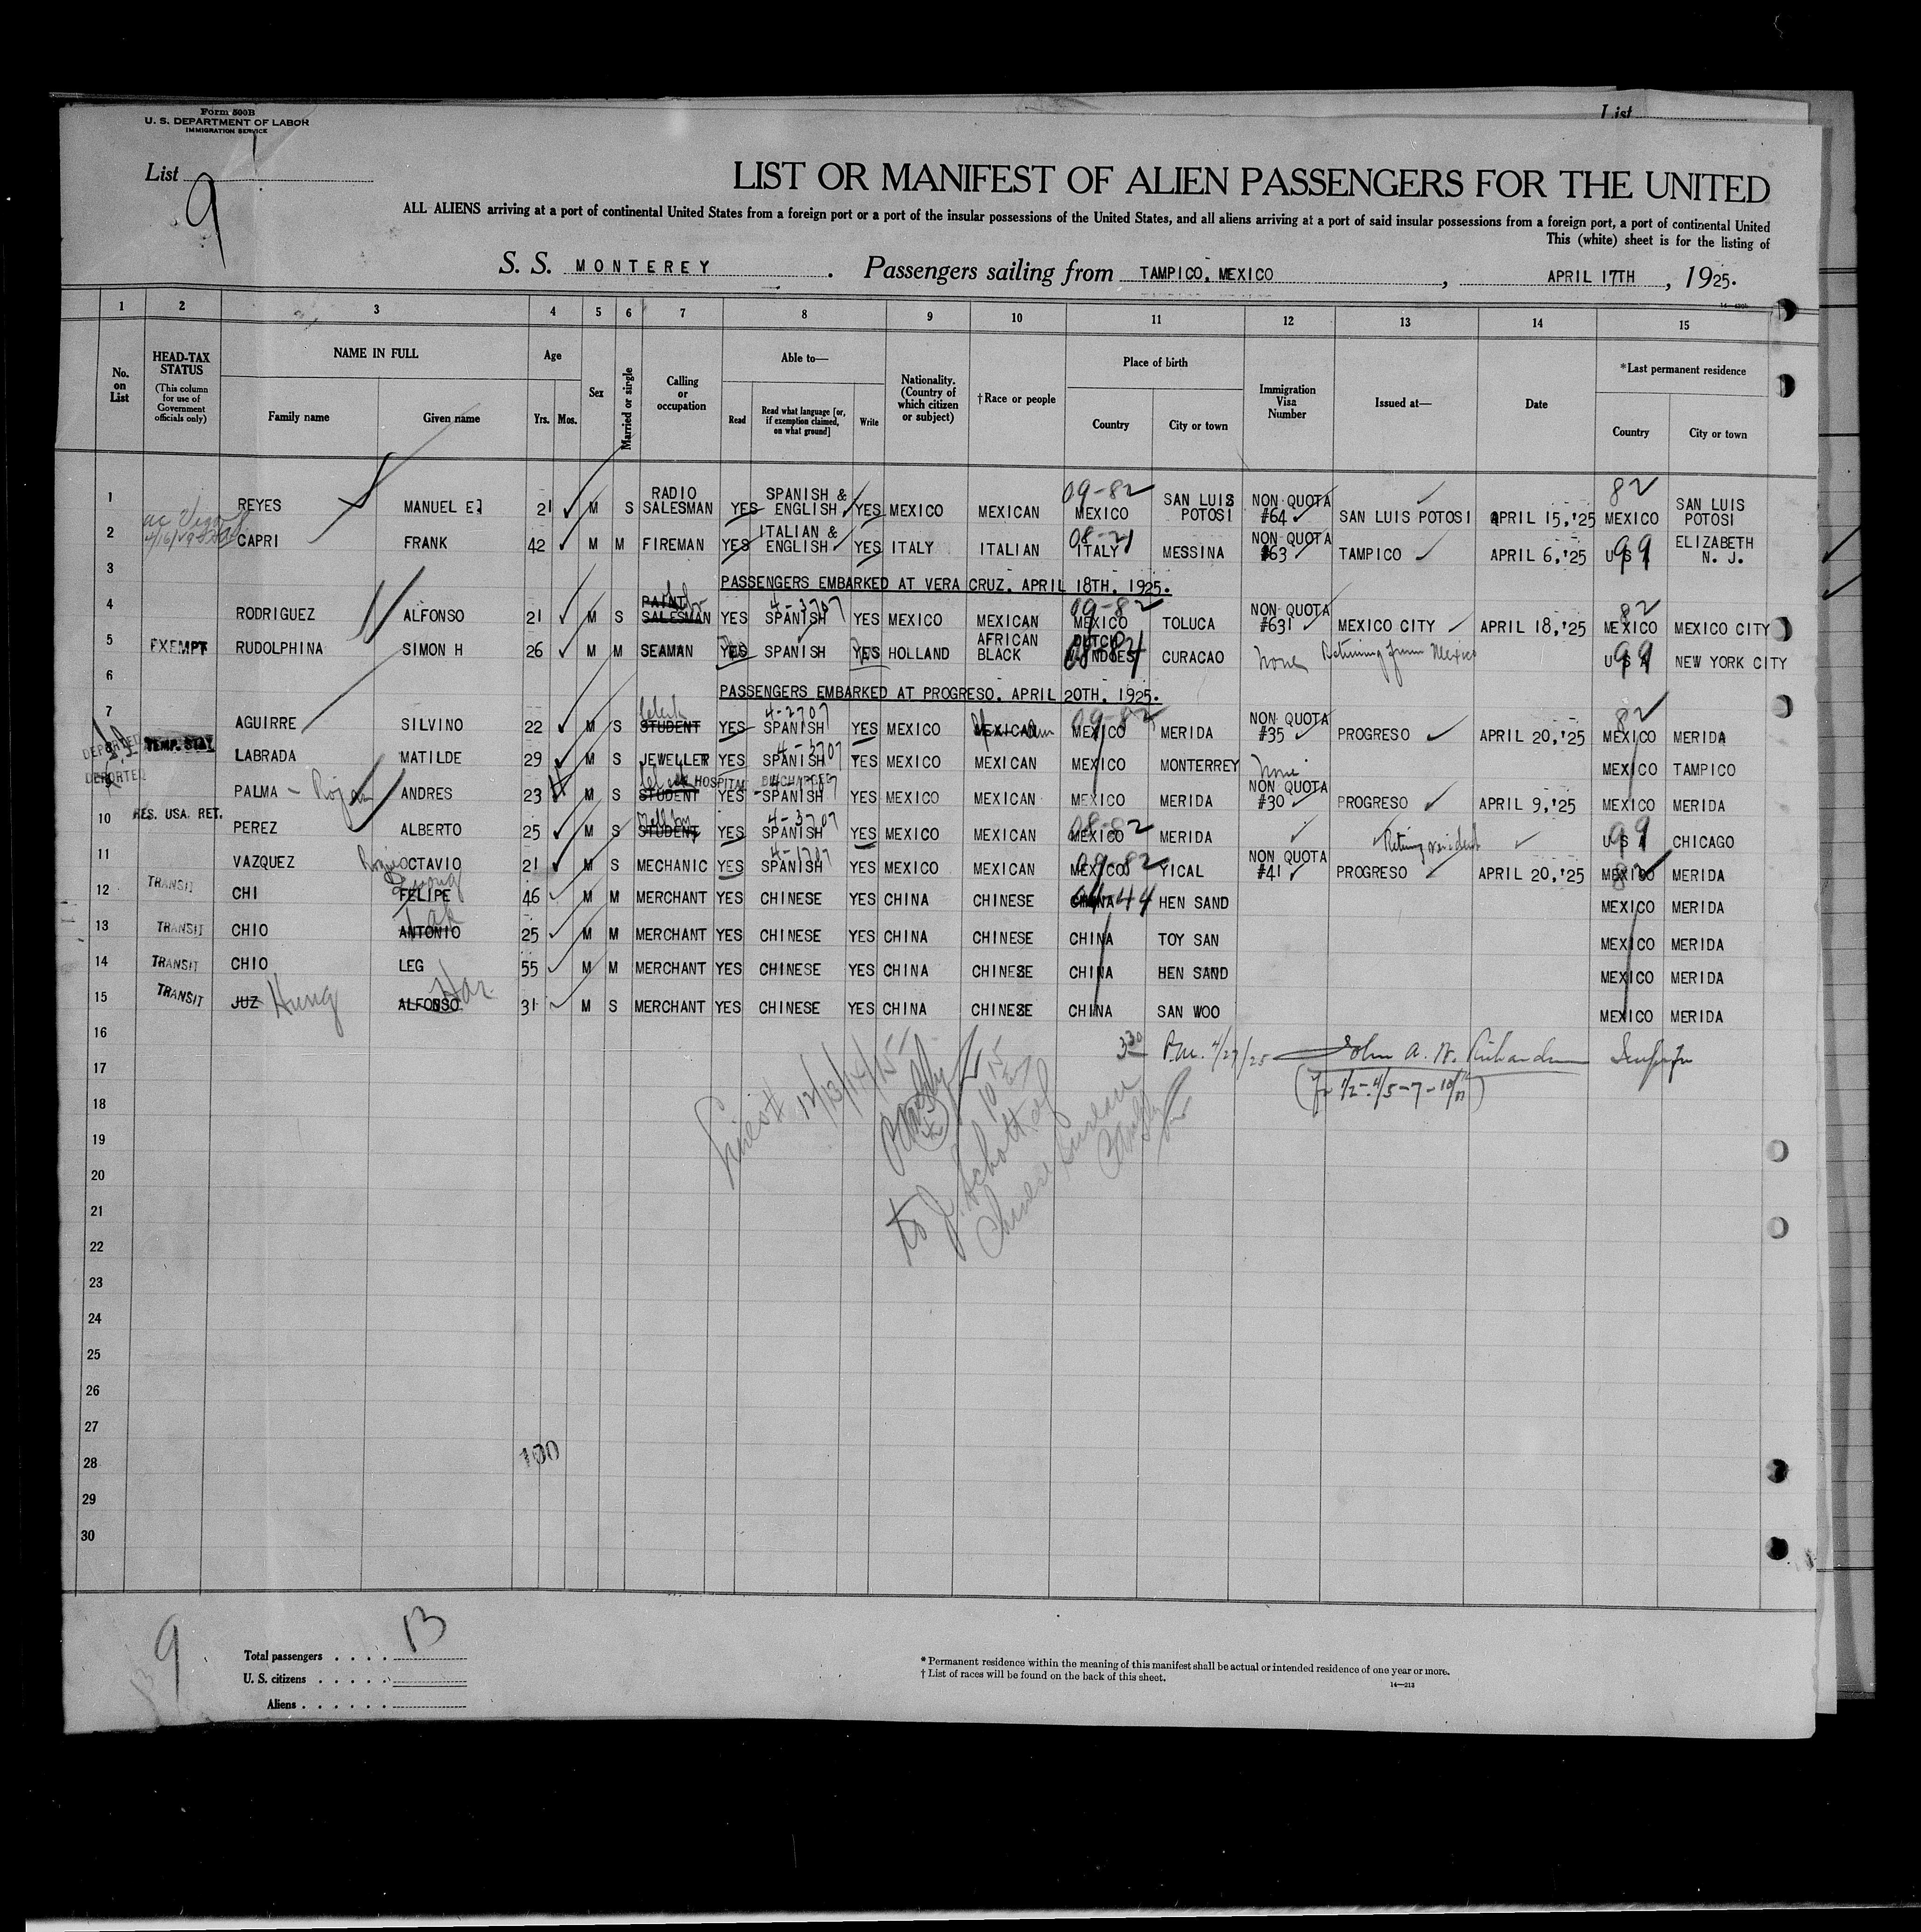 List
Form 500B
U. S. DEPARTMENT OF LABOR
IMMIGRATION SERVICE
List 9
LIST OR MANIFEST OF ALIEN PASSENGERS FOR THE UNITED
ALL ALIENS arriving at a port of continental United States from a foreign port or a port of the insular possessions of the United States, and all aliens arriving at a port of said insular possessions from a foreign port, a port of continental United
This (white) sheet is for the listing of
S. S. MONTEREY . Passengers sailing from TAMPICO, MEXICO , APRIL 17TH , 1925.
1 2 3 4 5 6 7 8 9 10 11 12 13 14 15
No. on List
HEAD-TAX STATUS (This column for use of Government officials only)
NAME IN FULL Family name Given name
Age Yrs. Mos.
Sex
Married or single
Calling or occupation
Able to— Read Read what language [or, if exemption claimed, on what ground] Write
Nationality. (Country of which citizen or subject)
†Race or people
Place of birth Country City or town
Immigration Visa Number
Issued at—
Date
*Last permanent residence Country City or town
1 REYES MANUEL E 21 M S RADIO SALESMAN YES SPANISH & ENGLISH YES MEXICO MEXICAN 09-82 MEXICO SAN LUIS POTOSI NON QUOTA #64 SAN LUIS POTOSI APRIL 15,'25 82 MEXICO SAN LUIS POTOSI
2 CAPRI FRANK 42 M M FIREMAN YES ITALIAN & ENGLISH YES ITALY ITALIAN 08-21 ITALY MESSINA NON QUOTA #63 TAMPICO APRIL 6,'25 99 U S A ELIZABETH N. J.
3 PASSENGERS EMBARKED AT VERA CRUZ, APRIL 18TH, 1925.
4 RODRIGUEZ ALFONSO 21 M S PAINT SALESMAN YES 4-3707 SPANISH YES MEXICO MEXICAN 09-82 MEXICO TOLUCA NON QUOTA #631 MEXICO CITY APRIL 18,'25 82 MEXICO MEXICO CITY
5 EXEMPT RUDOLPHINA SIMON H 26 M M SEAMAN YES SPANISH YES HOLLAND AFRICAN BLACK DUTCH W INDIES CURACAO None Returning from Mexico 99 U S A NEW YORK CITY
6 PASSENGERS EMBARKED AT PROGRESO, APRIL 20TH, 1925.
7 AGUIRRE SILVINO 22 M S Clerk STUDENT YES 4-2707 SPANISH YES MEXICO MEXICAN 09-82 MEXICO MERIDA NON QUOTA #35 PROGRESO APRIL 20,'25 82 MEXICO MERIDA
DEPORTED TEMP. STAY LABRADA MATILDE 29 M S JEWELLER YES 4-3707 SPANISH YES MEXICO MEXICAN MEXICO MONTERREY None MEXICO TAMPICO
DEPORTED PALMA - Rojas ANDRES 23 M S Clerk STUDENT HOSPITAL DISCHARGED YES SPANISH YES MEXICO MEXICAN MEXICO MERIDA NON QUOTA #30 PROGRESO APRIL 9,'25 MEXICO MERIDA
10 RES. USA. RET. PEREZ ALBERTO 25 M S STUDENT YES 4-3707 SPANISH YES MEXICO MEXICAN MEXICO MERIDA Retuning resident 99 U S A CHICAGO
11 VAZQUEZ OCTAVIO 21 M S MECHANIC YES 4-1707 SPANISH YES MEXICO MEXICAN 09-82 MEXICO YICAL NON QUOTA #41 PROGRESO APRIL 20,'25 82 MEXICO MERIDA
12 TRANSIT CHI FELIPE 46 M M MERCHANT YES CHINESE YES CHINA CHINESE CHINA HEN SAND MEXICO MERIDA
13 TRANSIT CHIO ANTONIO 25 M M MERCHANT YES CHINESE YES CHINA CHINESE CHINA TOY SAN MEXICO MERIDA
14 TRANSIT CHIO LEG 55 M M MERCHANT YES CHINESE YES CHINA CHINESE CHINA HEN SAND MEXICO MERIDA
15 TRANSIT JUZ Hung ALFONSO Har 31 M S MERCHANT YES CHINESE YES CHINA CHINESE CHINA SAN WOO MEXICO MERIDA
16 3 30 P.m. 4/27/25 John A. W. Richardson
17
18
19
20
21
22
23
24
25
26
27
28
29
30
Lines 12/13/14/15
to J. Schott of
Chinese Bureau
100
9
Total passengers . . . . 13
U. S. citizens . . . . .
Aliens . . . . . .
* Permanent residence within the meaning of this manifest shall be actual or intended residence of one year or more.
† List of races will be found on the back of this sheet.
14—213